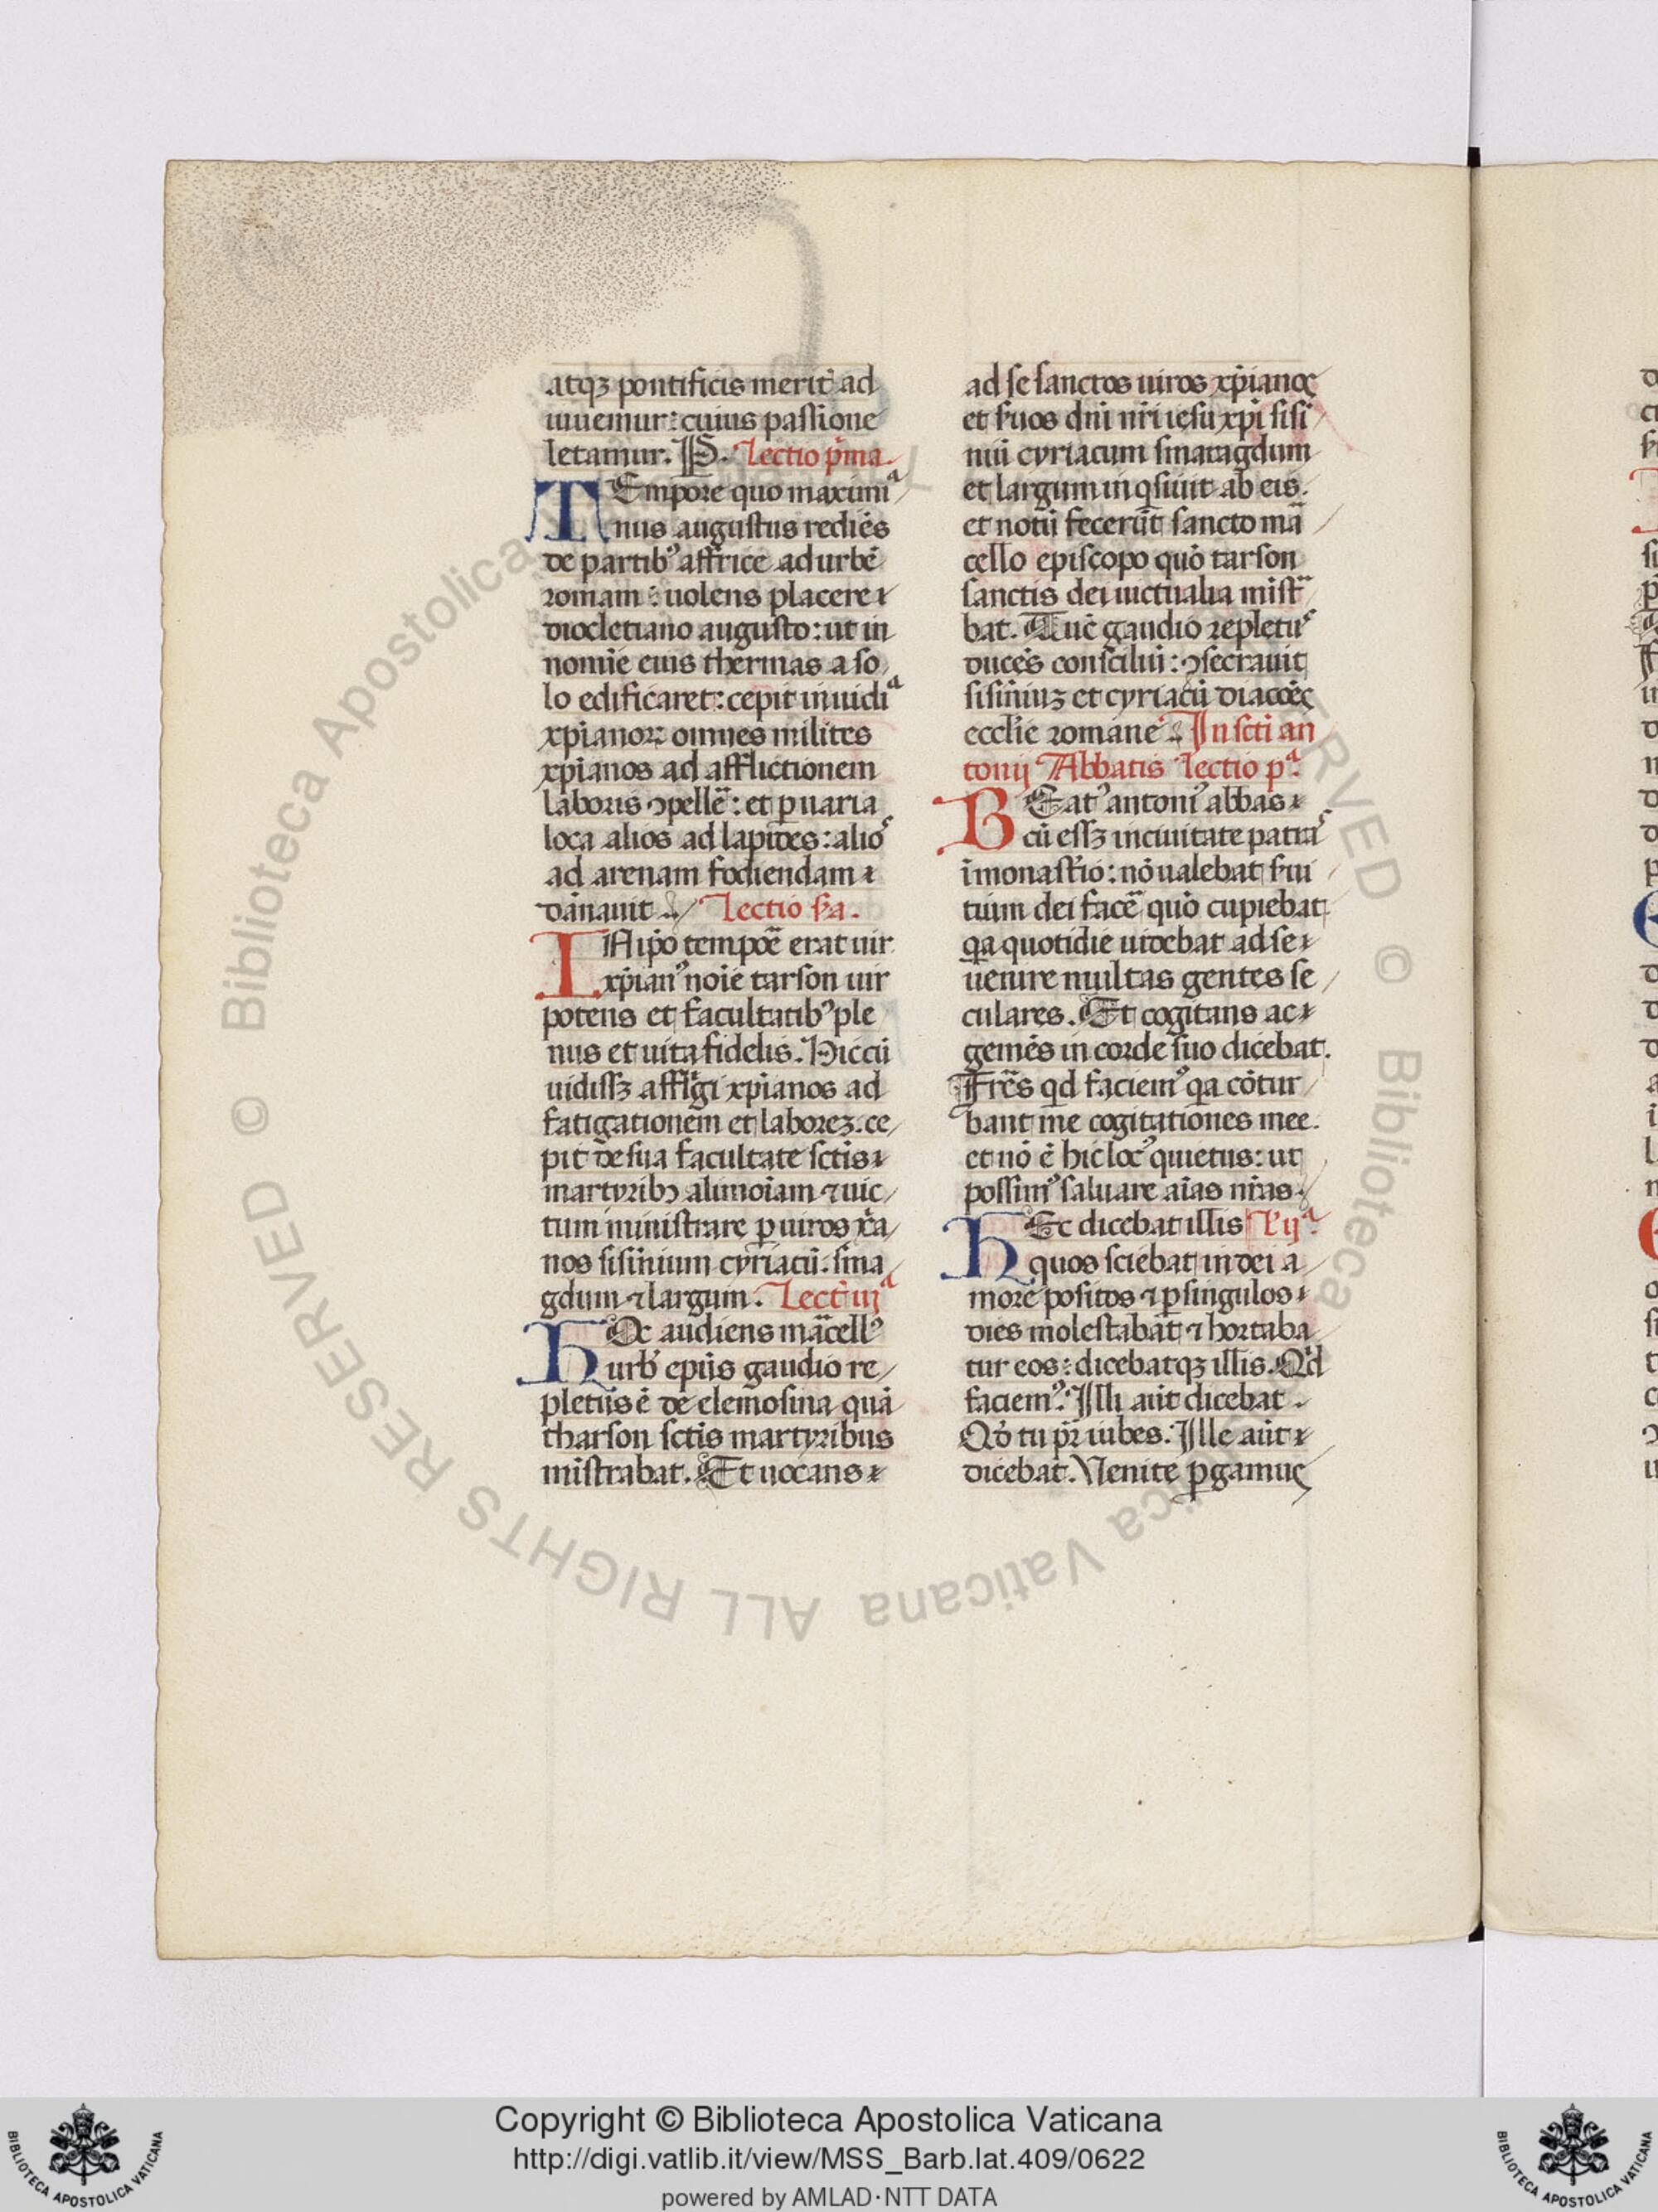 atqꝫ pontificis merit᷒ ad
iuuemur: cuius passione
letamur. P. Lectio p͛ma.
TEmpore quo maximiᵃ
nus augustus rediēs
de partibꝰ affrice ad urbē
romam: uolens placere
diocletiano augusto: ut in
nomīe eius thermas a so
lo edificaret: cepit inuidiᵃ
xp̄ianoꝝ omnes milites
xp̄ianos ad afflictionem
laboris ꝯpelle᷑: et ꝑ uaria
loca alios ad lapides: alioˢ
ad arenam fodiendam
dānauit. Lectio s̄a.
IN ip̄o tempoe᷑ erat uir
xp̄ianꝰ noīe tarson uir
potens et facultatibꝰ ple
nus et uita fidelis. Hic cū
uidissꝫ affligi xp̄ianos ad
fatigationem et laboreꝫ. ce
pit de sua facultate sctīs
martyribꝫ alimoīam ⁊ uic
tum ministrare ꝑ uiros xr̄a
nos sisinium cyriacū. sma
gdum ⁊ largum. Lect᷑ iijᵃ
HOc audiens ma᷑cellꝰ
urb̄ ep̄us gaudio re
pletus ē de elemosina quā
tharson sctīs martyribus
mīstrabat. Et uocans
ad se sanctos uiros xp̄ianoꝭ
et s̄uos dnī nr̄i iesu xp̄i sisī
nii cyriacum smaragdum
et largum inqͥsiuit ab eis.
et notū fecerūt sancto ma᷑
cello episcopo quō tarson
sanctis dei uictualia mīst᷑
bat. Tūc gaudio repletuˢ
ducēs consilui: ꝯsecrauit
sisiniuꝫ et cyriacū diacōeꝭ
eccl̄ie romane. In scti an
tonij Abbatis Lectio pᵃ.
BEatꝰ antoniꝰ abbas
cū essꝫ in ciuitate patraˢ
ī monast᷑io: nō ualebat s̄ui
tium dei face᷑ quō cupiebat
qͣ quotidie uidebat ad se
uenire multas gentes se
culares. Et cogitans ac
gemēs in corde suo dicebat.
Fr̄es qͥd faciemꝰ qͣ cōtur
bant me cogitationes mee.
et nō ē hic locꝰ quietus: ut
possimꝰ saluare aīas nr̄as.
HEc dicebat illis L᷑ ijᵃ.
quos sciebat in dei a
more positos ⁊ ꝑ singulos
dies molestabat ⁊ hortaba
tur eos: dicebatqꝫ illis. Qͥd
faciemꝰ. Illi aūt dicebāt.
Qō tu pr̄ iubes. Ille aūt
dicebat. Venite ꝑgamuꝭ
Copyright © Biblioteca Apostolica Vaticana
http://digi.vatlib.it/view/MSS_Barb.lat.409/0622
powered by AMLAD·NTT DATA